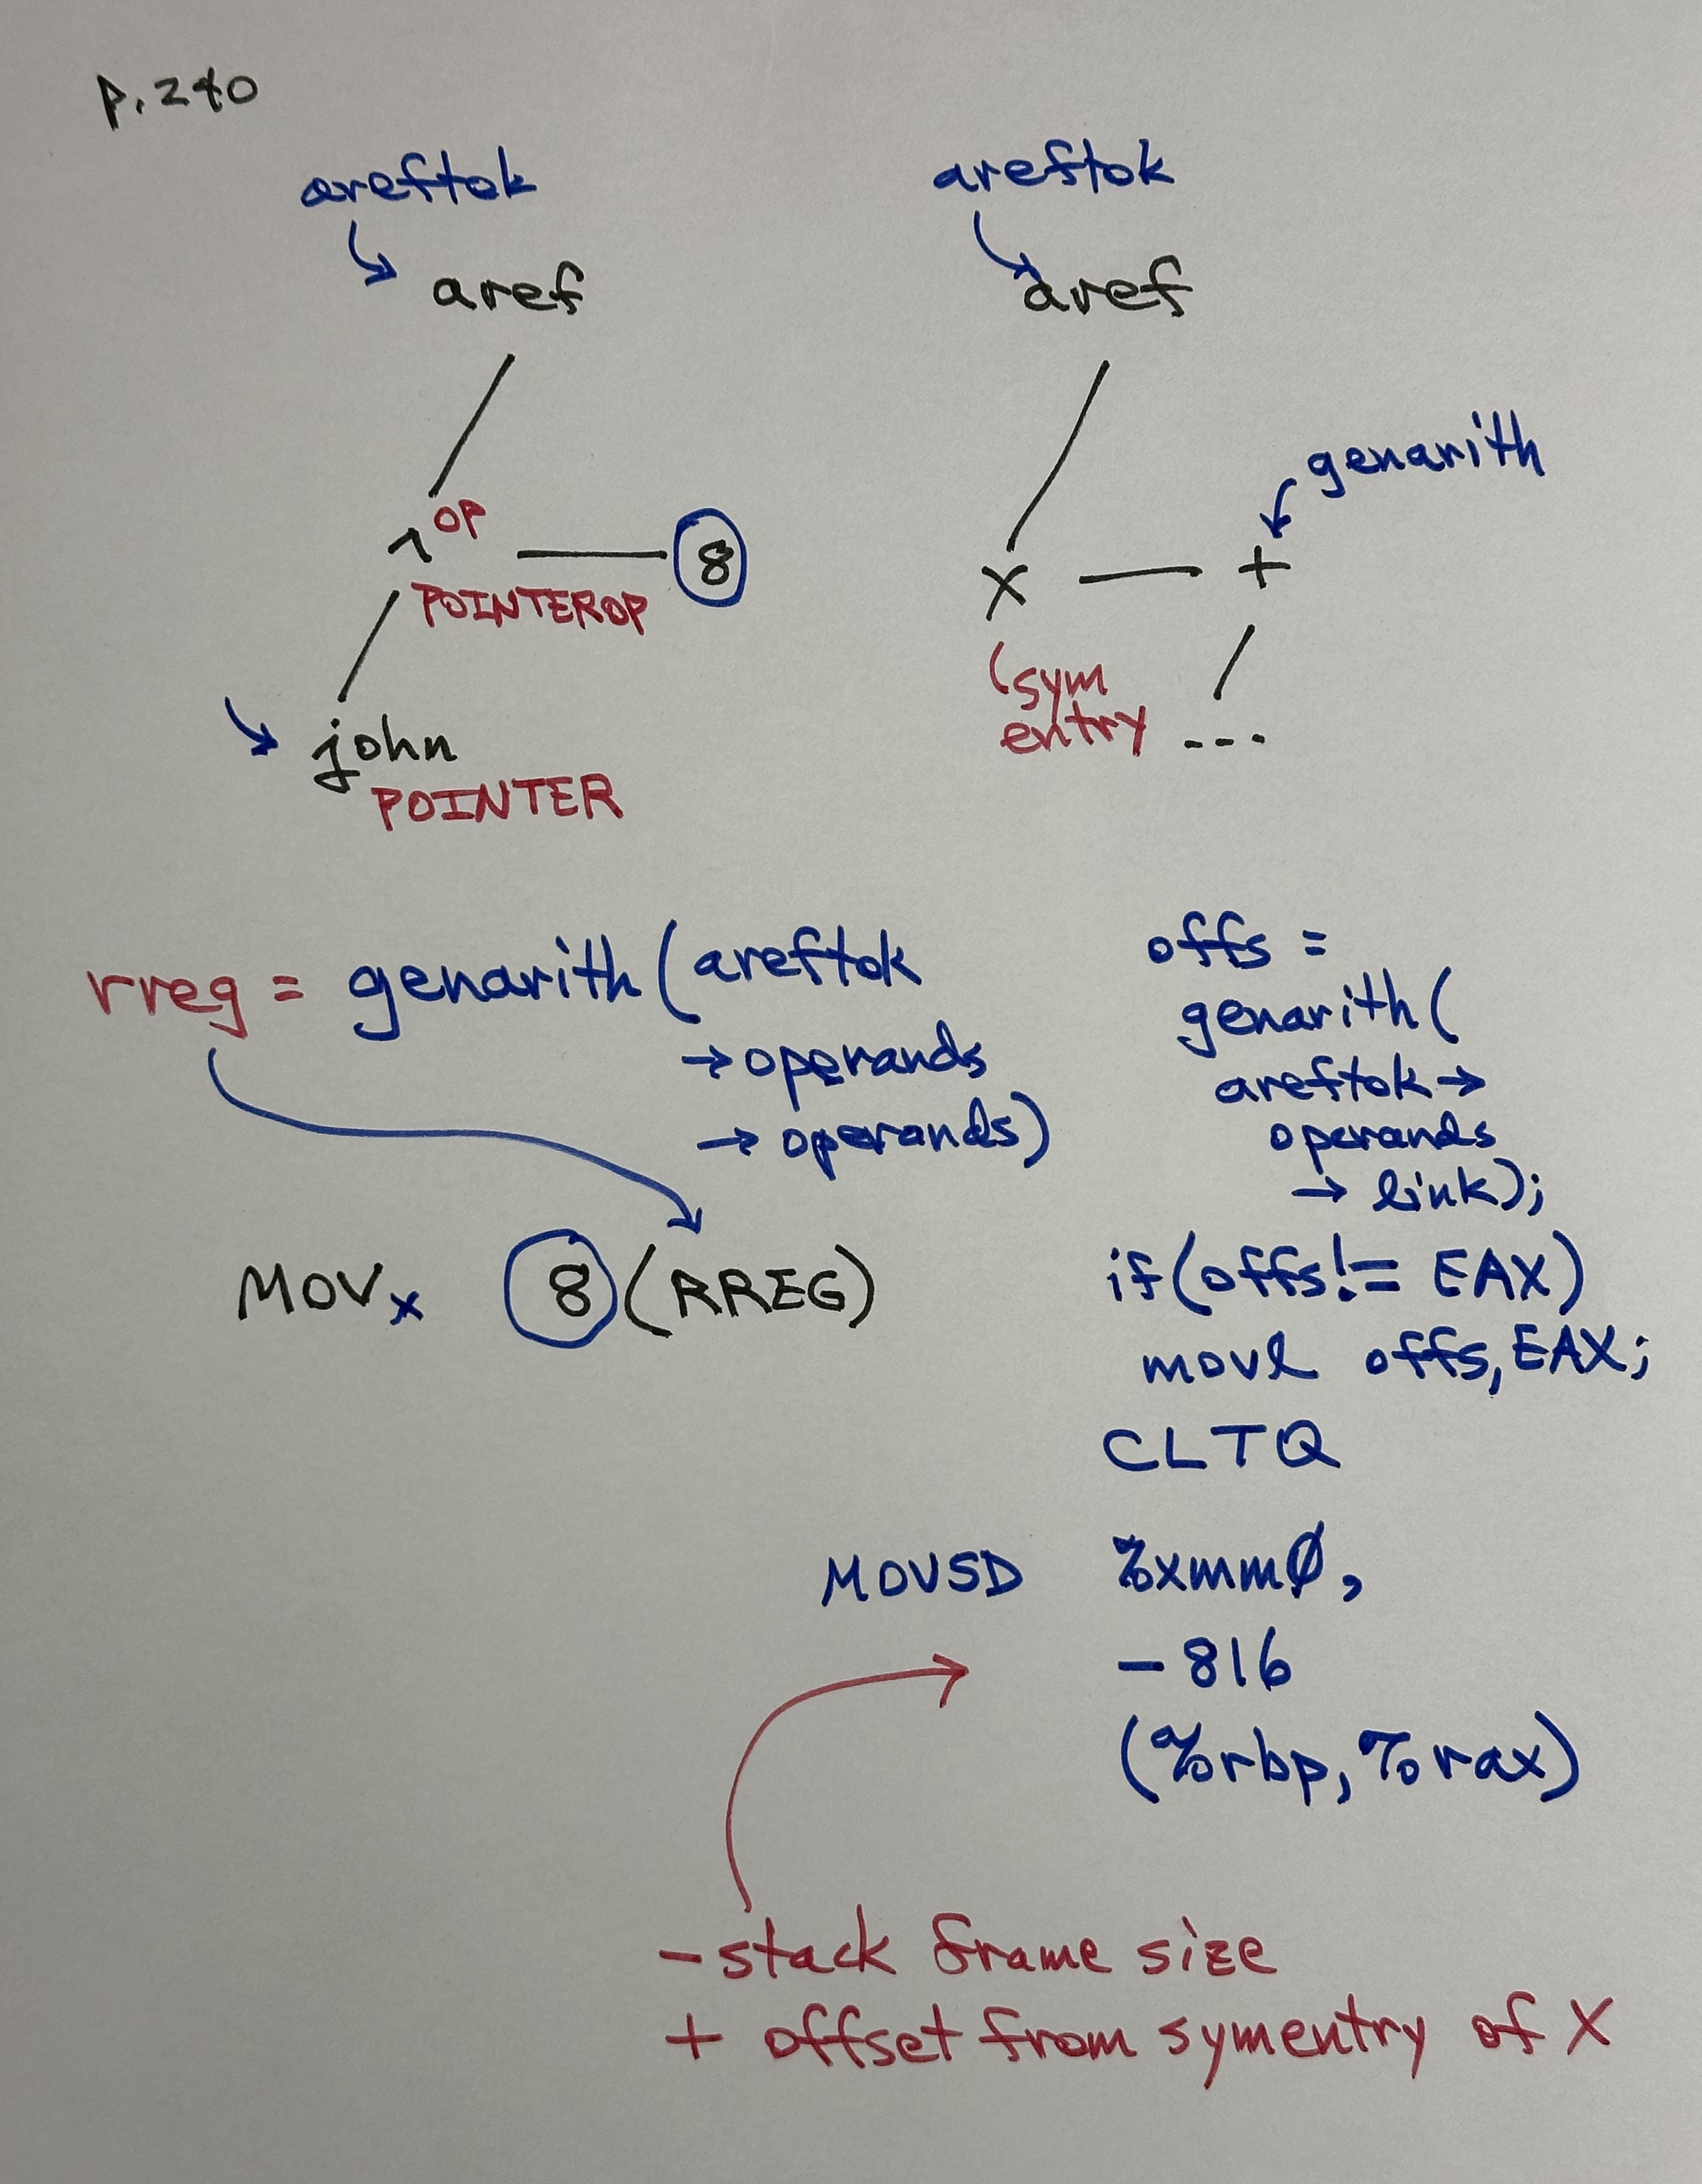 p. 240
areftok
aref
^ OP
8
POINTEROP
john
POINTER
areftok
aref
genarith
x
+
(sym
entry
---
rreg = genarith (areftok
→ operands
→ operands)
MOVx 8 (RREG)
offs =
genarith (
areftok →
operands
→ link);
if (offs != EAX)
movl offs, EAX;
CLTQ
MOVSD %xmm0,
-816
(%rbp, %rax)
- stack frame size
+ offset from symentry of X